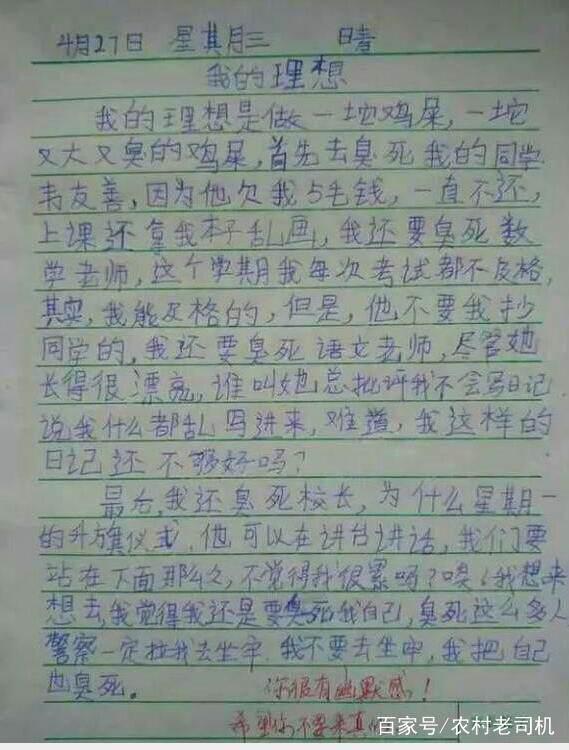 4月27日 星其月三 晴
我的理想
我的理想是做一坨鸡屎，一坨
又大又臭的鸡屎，首先去臭死我的同学
韦友善，因为他欠我5毛钱，一直不还，
上课还拿我本子乱画，我还要臭死数
学老师，这个学期我每次考试都不及格，
其实，我能及格的，但是，他不要我抄
同学的，我还要臭死语文老师，尽管她
长得很漂亮，谁叫她总批评我不会写日记
说我什么都乱写进来，难道，我这样的
日记还不够好吗？
最后，我还臭死校长，为什么星期一
的升旗仪式，他可以在讲台讲话，我们要
站在下面那么久，不觉得我很累吗？唉！我想来
想去，我觉得我还是要臭死我自己，臭死这么多人
警察一定拉我去坐牢，我不要去坐牢，我把自己
也臭死。
你很有幽默感！
希望你不要来真的
百家号/农村老司机